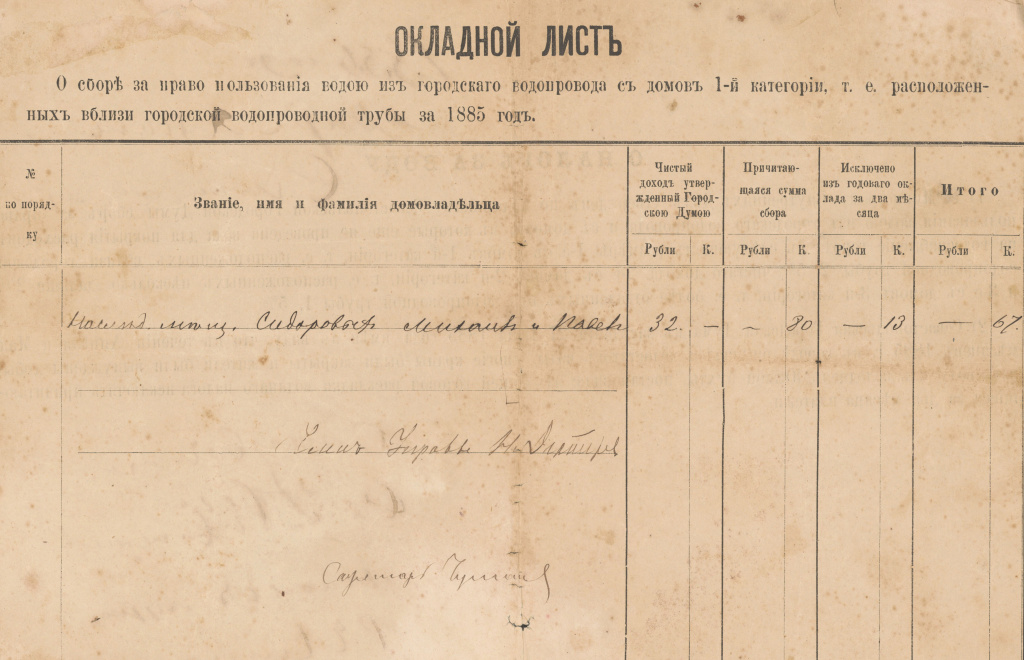 ОКЛАДНОЙ ЛИСТЪ
О сборѣ за право пользованія водою изъ городскаго водопровода съ домовъ 1-й категоріи, т. е. расположен-
ныхъ вблизи городской водопроводной трубы за 1885 годъ.
№
по поряд-
ку
Званіе, имя и фамилія домовладѣльца
Чистый
доходъ утвер-
жденный Город-
скою Думою
Рубли К.
Причитаю-
щаяся сумма
сбора
Рубли К.
Исключено
изъ годоваго ок-
лада за два мѣ-
сяца
Рубли К.
Итого
Рубли К.
Наслѣд. мѣщ. Сидоровыхъ Михаилъ и 32. — — 80 — 13 — 67.
Членъ Управы
Секретарь